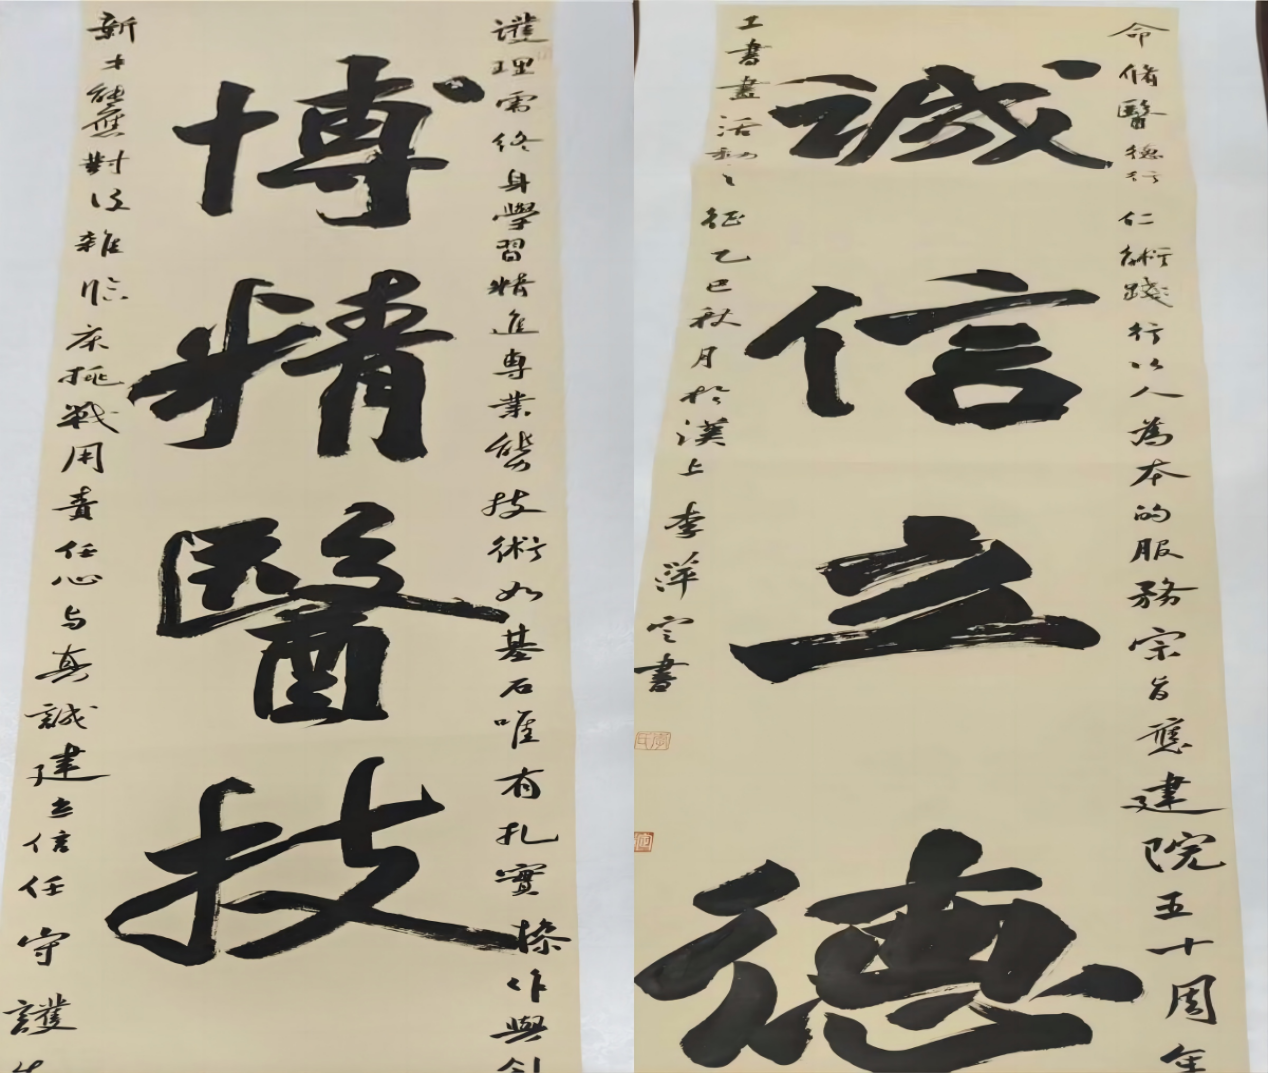 護理需終身學習精進專業能技術如基石唯有扎實操作與創
博精醫技
新才能應對復雜臨床挑戰用責任心与真誠建立信任守護生
命脩醫德行仁術踐行以人為本的服務宗旨應建院五十周年
誠信立德
工書畫活動之征乙巳秋月於漢上李萍書